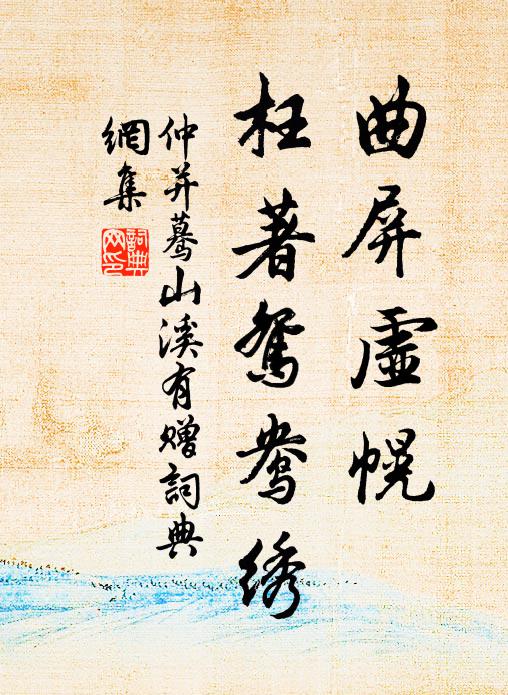 曲屏虛幌
枉著鴛鴦绣
仲并驀山溪有赠詞典
網集
詞典網印